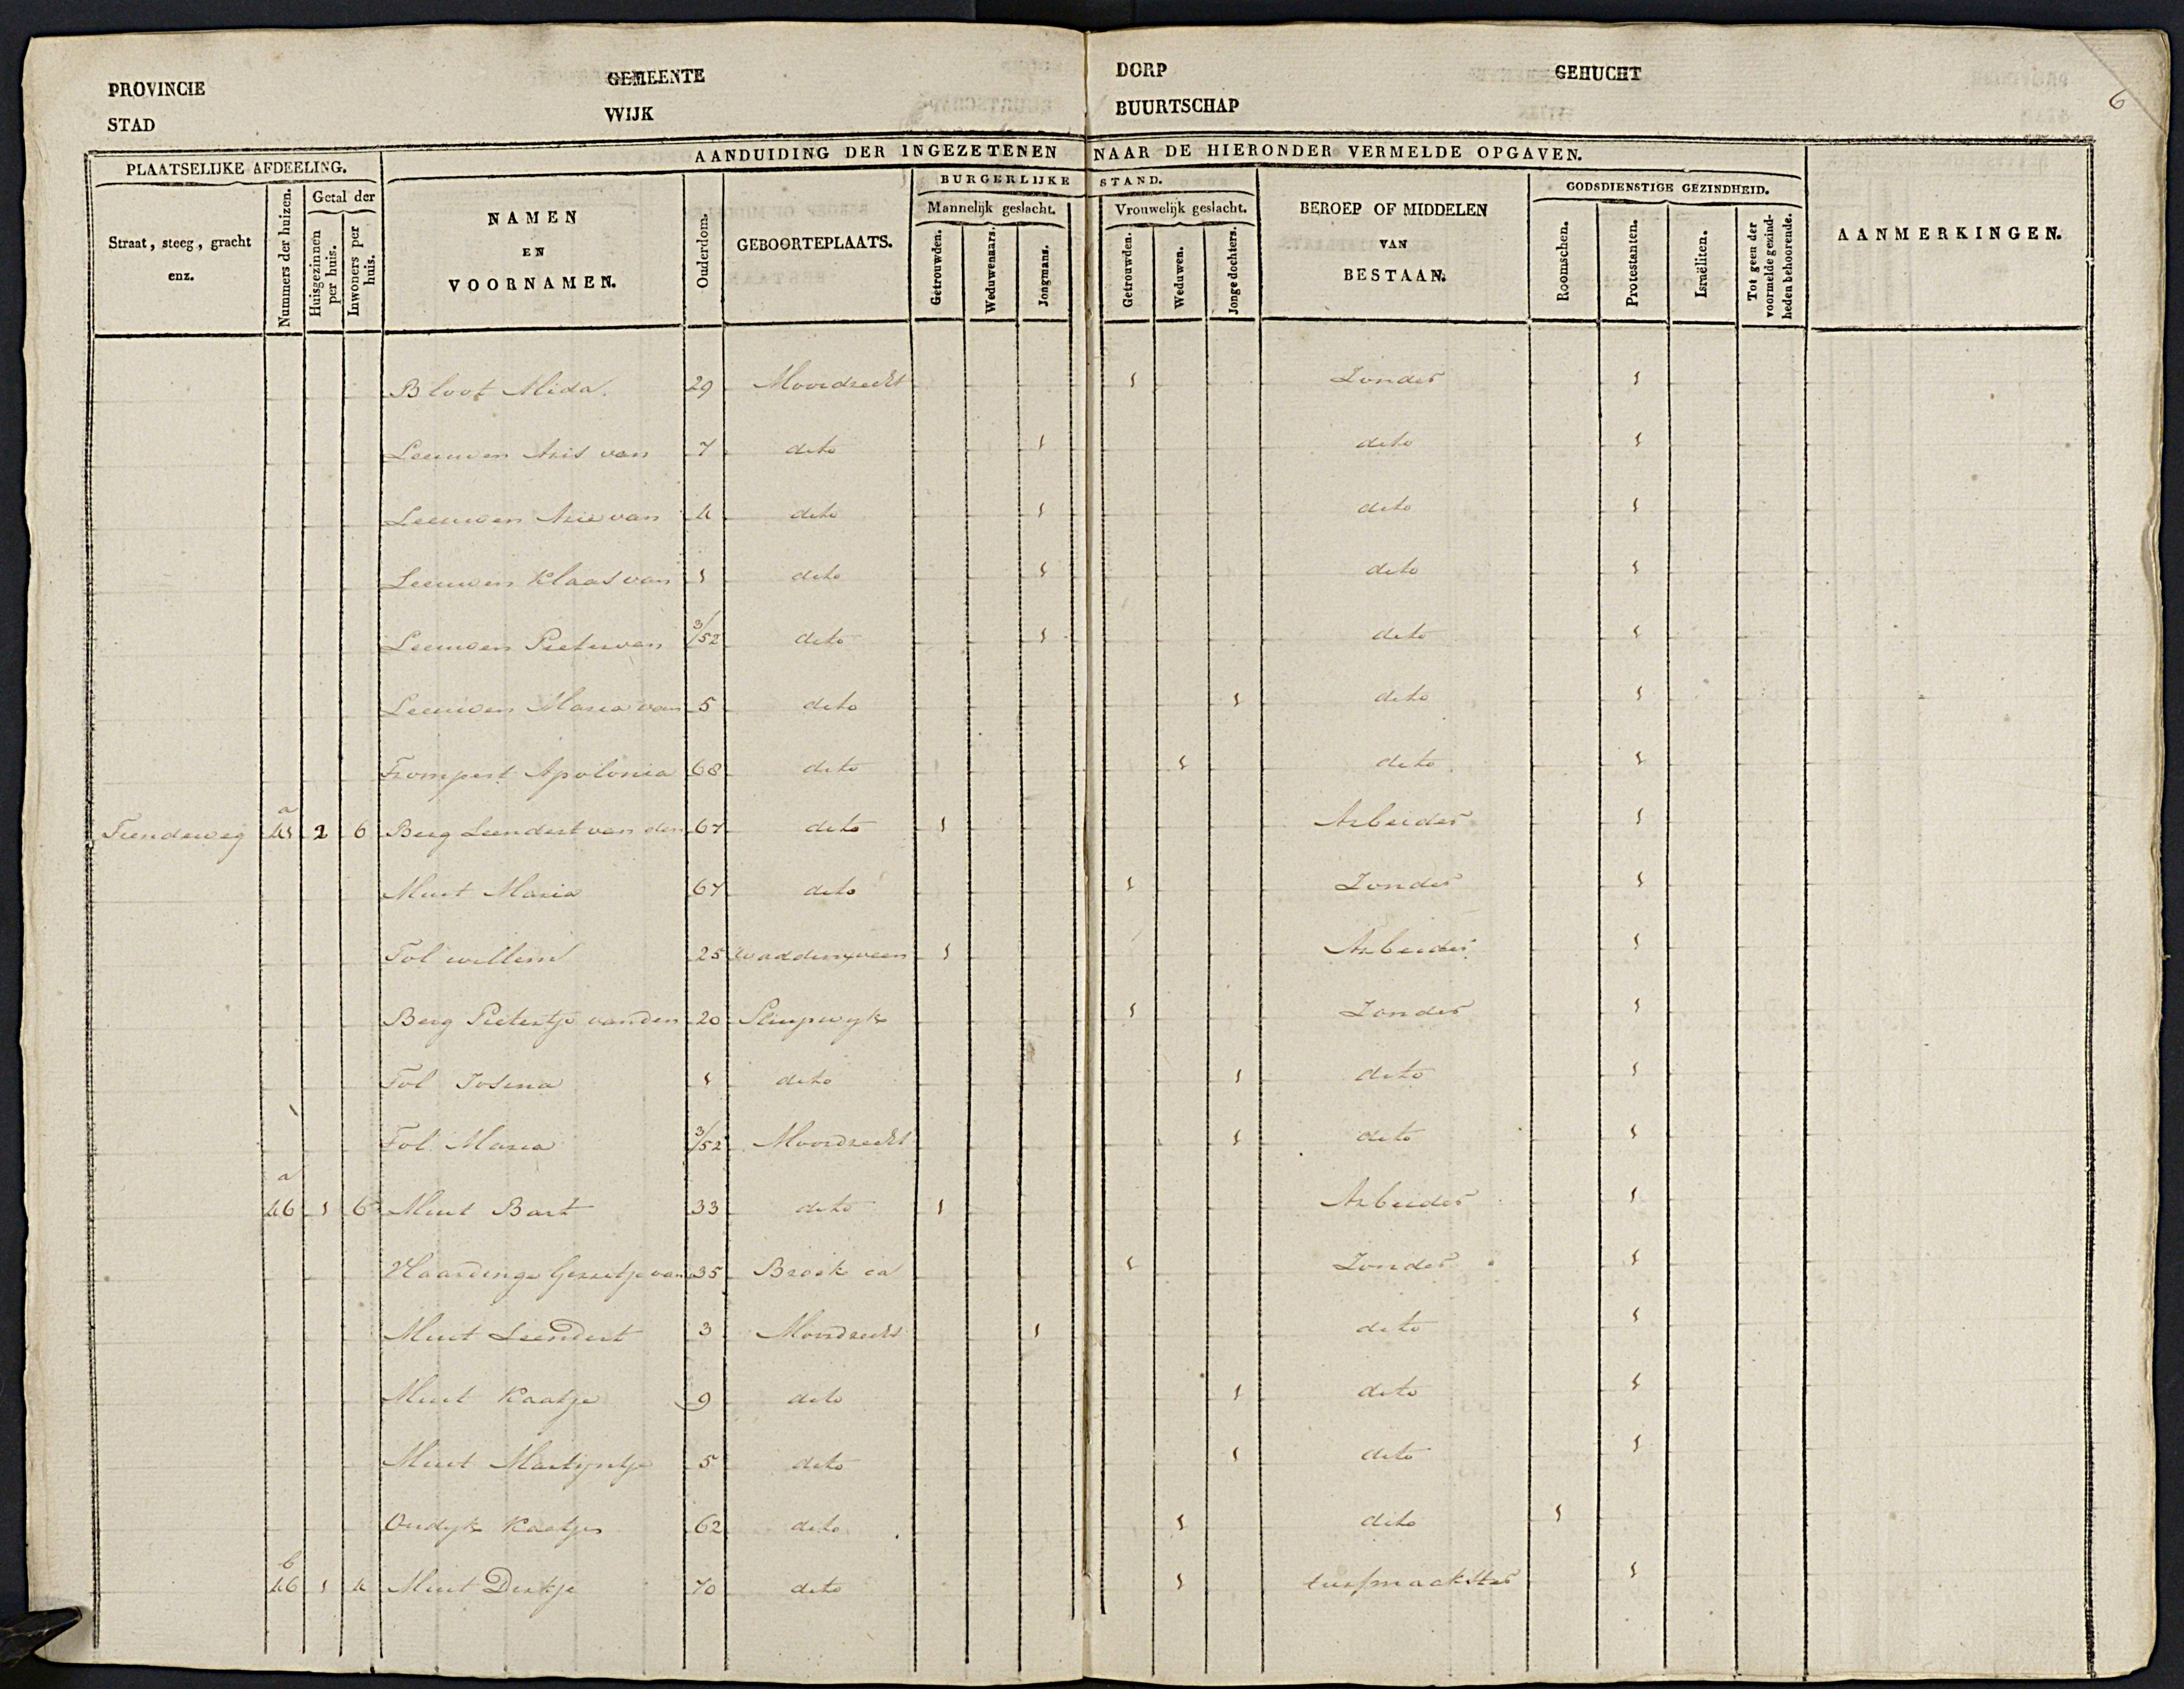 PROVINCIE GEMEENTE DORP GEHUCHT
STAD WIJK BUURTSCHAP
6
PLAATSELIJKE AFDEELING. AANDUIDING DER INGEZETENEN NAAR DE HIERONDER VERMELDE OPGAVEN.
Straat, steeg, gracht enz. Nummers der huizen. Getal der Huisgezinnen per huis. Inwoners per huis. NAMEN EN VOORNAMEN. Ouderdom. GEBOORTEPLAATS. BURGERLIJKE STAND. Mannelijk geslacht. Getrouwden. Weduwenaars. Jongmans. Vrouwelijk geslacht. Getrouwden. Weduwen. Jonge dochters. BEROEP OF MIDDELEN VAN BESTAAN. GODSDIENSTIGE GEZINDHEID. Roomschen. Protestanten. Israëliten. Tot geen der voormelde gezindheden behoorende. AANMERKINGEN.
Bloot Alida 29 Moordrecht 1 Zonder 1
Leeuwen Aris van 7 dito 1 dito 1
Leeuwen Arie van 4 dito 1 dito 1
Leeuwen Klaas van 1 dito 1 dito 1
Leeuwen Pieter van 3/52 dito 1 dito 1
Leeuwen Maria van 5 dito 1 dito 1
Trompert Apolonia 68 dito 1 dito 1
Tiendeweg 45 a 2 6 Berg Leendert van den 67 dito 1 Arbeider 1
Muit Maria 67 dito 1 Zonder 1
Tol willem 25 waddinxveen 1 Arbeider 1
Berg Pietertje van den 20 Sluipwyk 1 Zonder 1
Tol Josina 1 dito 1 dito 1
Tol Maria 3/52 Moordrecht 1 dito 1
46 a 1 6 Muit Bart 33 dito 1 Arbeider 1
Vlaardinge Gerretje van 35 Broek ca 1 Zonder 1
Muit Leendert 3 Moordrecht 1 dito 1
Muit Kaatje 9 dito 1 dito 1
Muit Martijntje 5 dito 1 dito 1
Oudyk Kaatje 62 dito 1 dito 1
46 b 1 4 Muit Dirkje 70 dito 1 turfmaakster 1